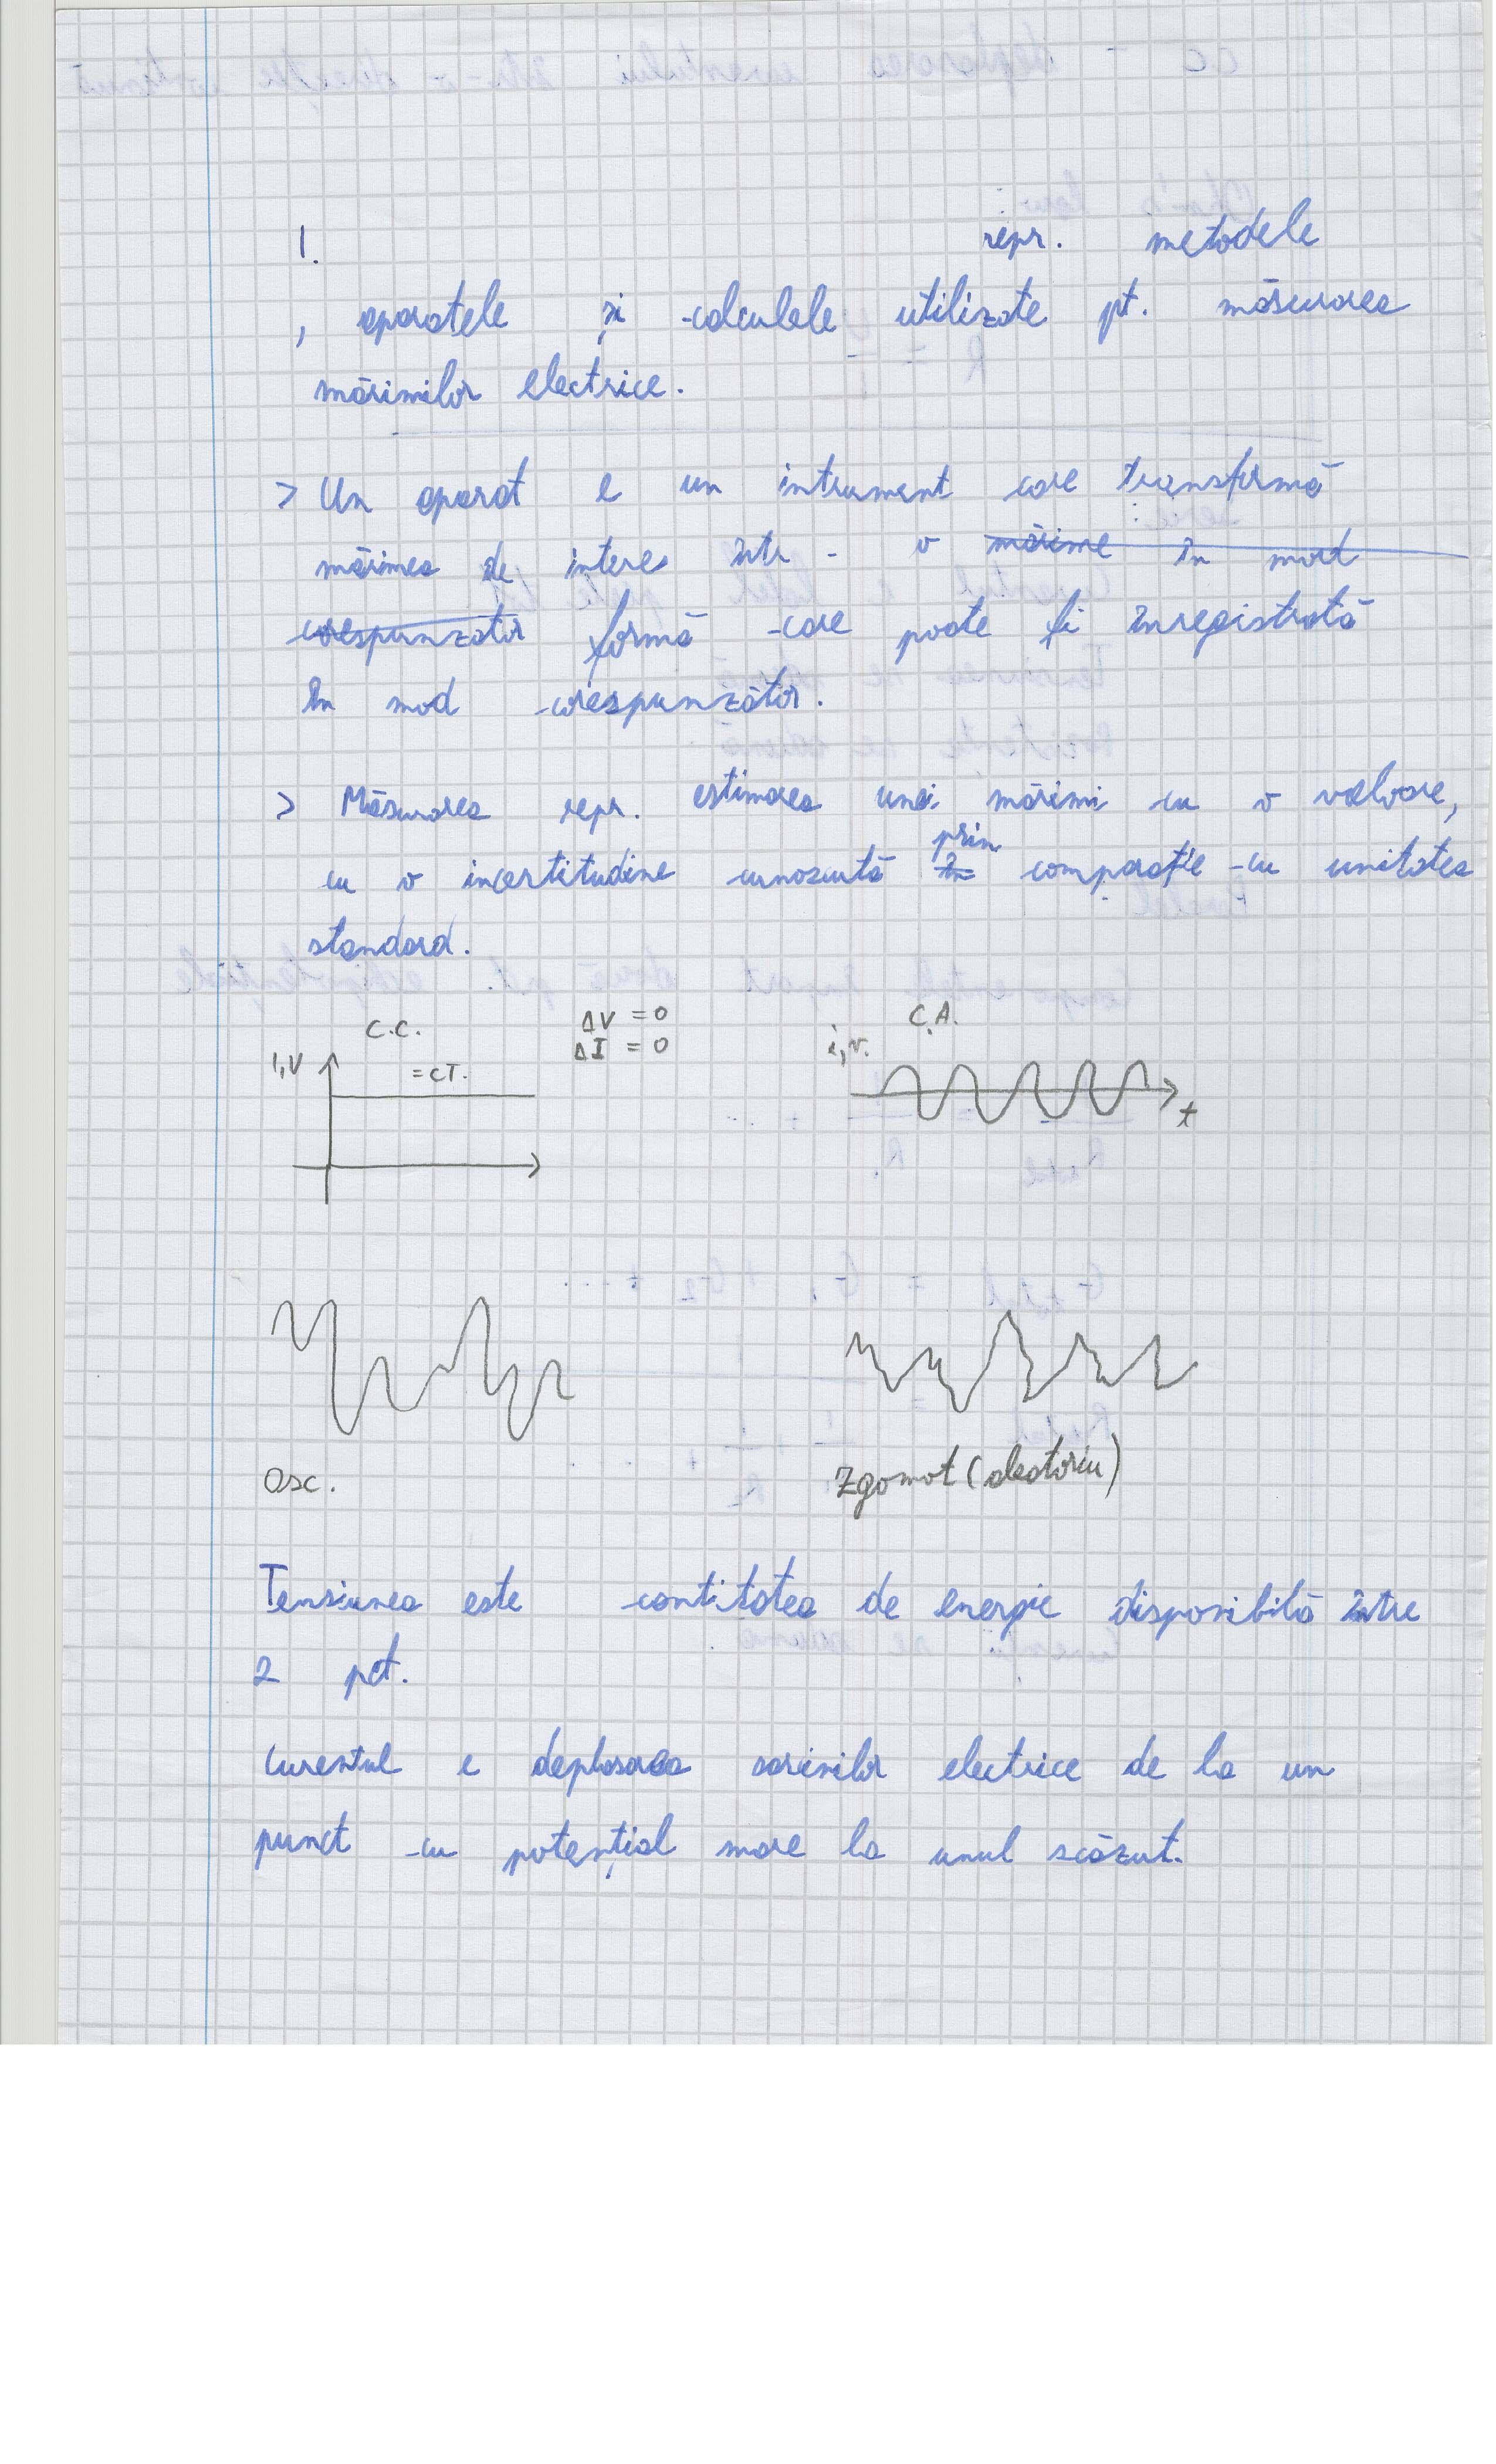 1. repr. metodele
, aparatele și calculele utilizate pt. măsurarea
mărimilor electrice.
> Un aparat e un intrument care transformă
mărimea de interes într-o mărime în mod
corespunzător formă care poate fi înregistrată
În mod corespunzător.
> Măsurarea repr. estimarea unei mărimi cu o valoare,
prin
cu o incertitudine cunoscută în comparație cu unitatea
standard.
C.C. ΔV = 0 C.A.
ΔI = 0 i,v.
I,V = CT.
t
Osc. Zgomot (aleatoriu)
Tensiunea este cantitatea de energie disponibilă între
2 pct.
Curentul e deplasarea sarcinilor electrice de la un
punct cu potențial mare la unul scăzut.